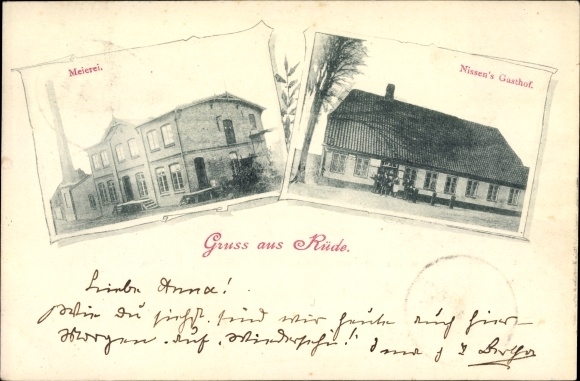 Meierei.
Nissen's Gasthof.
Gruss aus Rüde.
Liebe Anna!
Wie Du siehst sind wir heute auch hier
Morgen auf „Wiedersehn!" Ima Bertha